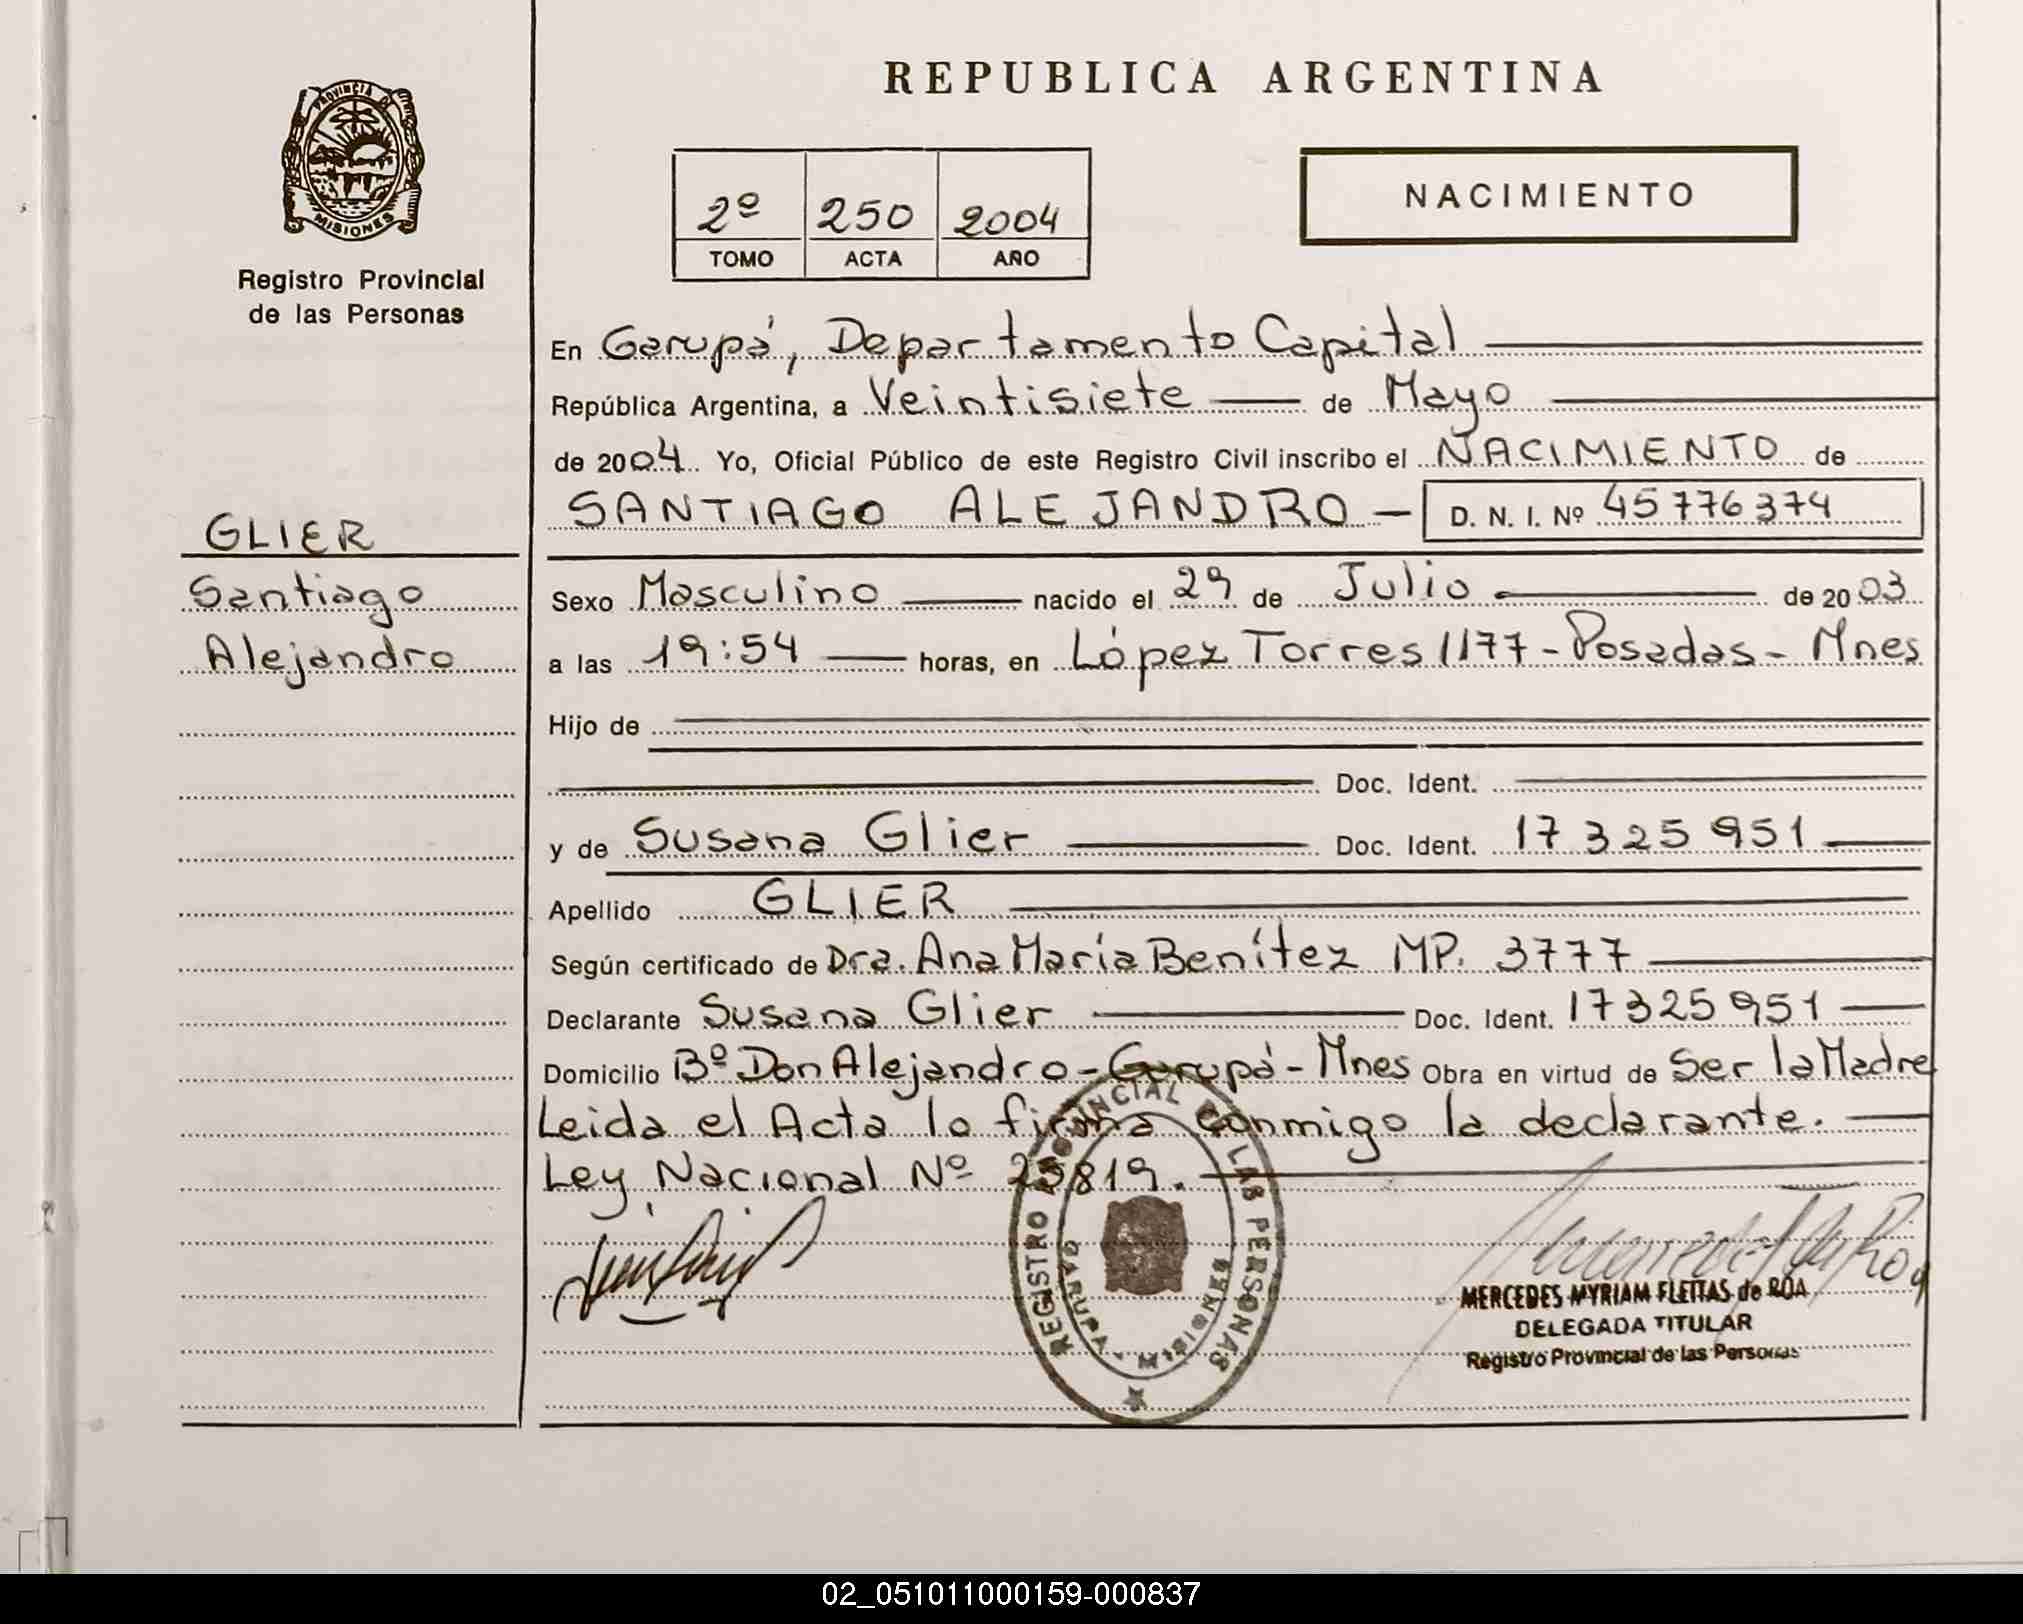 REPUBLICA ARGENTINA
PROVINCIA DE
MISIONES
Registro Provincial
de las Personas
2º 250 2004
TOMO ACTA AÑO
NACIMIENTO
En Garupá, Departamento Capital
República Argentina, a Veintisiete de Mayo
de 2004 Yo, Oficial Público de este Registro Civil inscribo el NACIMIENTO de
SANTIAGO ALEJANDRO - D. N. I. Nº 45776374
GLIER
Santiago
Alejandro
Sexo Masculino nacido el 29 de Julio de 2003
a las 19:54 horas, en López Torres 1177 - Posadas - Mnes
Hijo de
Doc. Ident.
y de Susana Glier Doc. Ident. 17325951
Apellido GLIER
Según certificado de Dra. Ana María Benítez MP. 3777
Declarante Susana Glier Doc. Ident. 17325951
Domicilio Bº Don Alejandro - Garupá - Mnes Obra en virtud de Ser la Madre
Leida el Acta lo firma conmigo la declarante.
Ley Nacional Nº 25819.
REGISTRO PROVINCIAL DE LAS PERSONAS
GARUPA - MISIONES
MERCEDES MYRIAM FLEITAS de ROA
DELEGADA TITULAR
Registro Provincial de las Personas
02_051011000159-000837